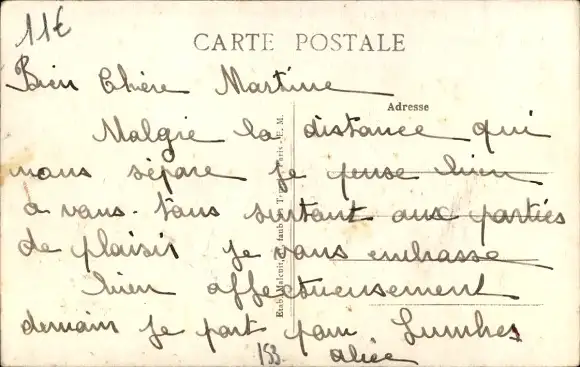 11€
CARTE POSTALE
Bien Chère Martine
Adresse
Malgré la distance qui
nous sépare je pense bien
a vous. tous surtout aux parties
de plaisir je vous embrasse
bien affectueusement
demain je part pour Lumbres
153 alice